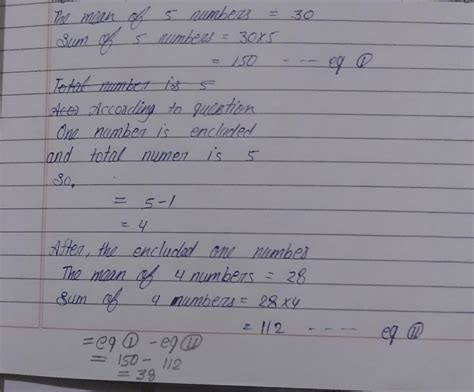 The mean of 5 numbers = 30
Sum of 5 numbers = 30x5
= 150 --- eq I
Total number is 5
According to question
One number is encluded
and total numer is 5
So,
= 5-1
= 4
After, the encluded one number
The mean of 4 numbers = 28
Sum of 4 numbers = 28x4
= 112 ---- eq II
= eq I - eq II
= 150 - 112
= 38